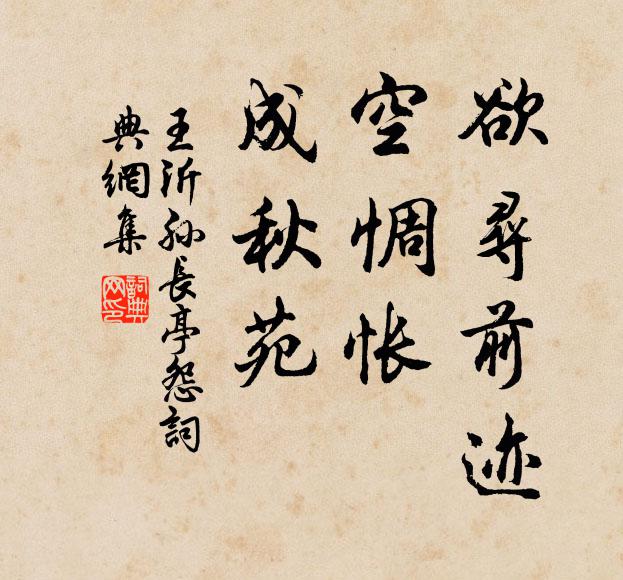 欲尋前迹
空惆怅
成秋苑
王沂孙長亭怨詞
典網集
詞典網印